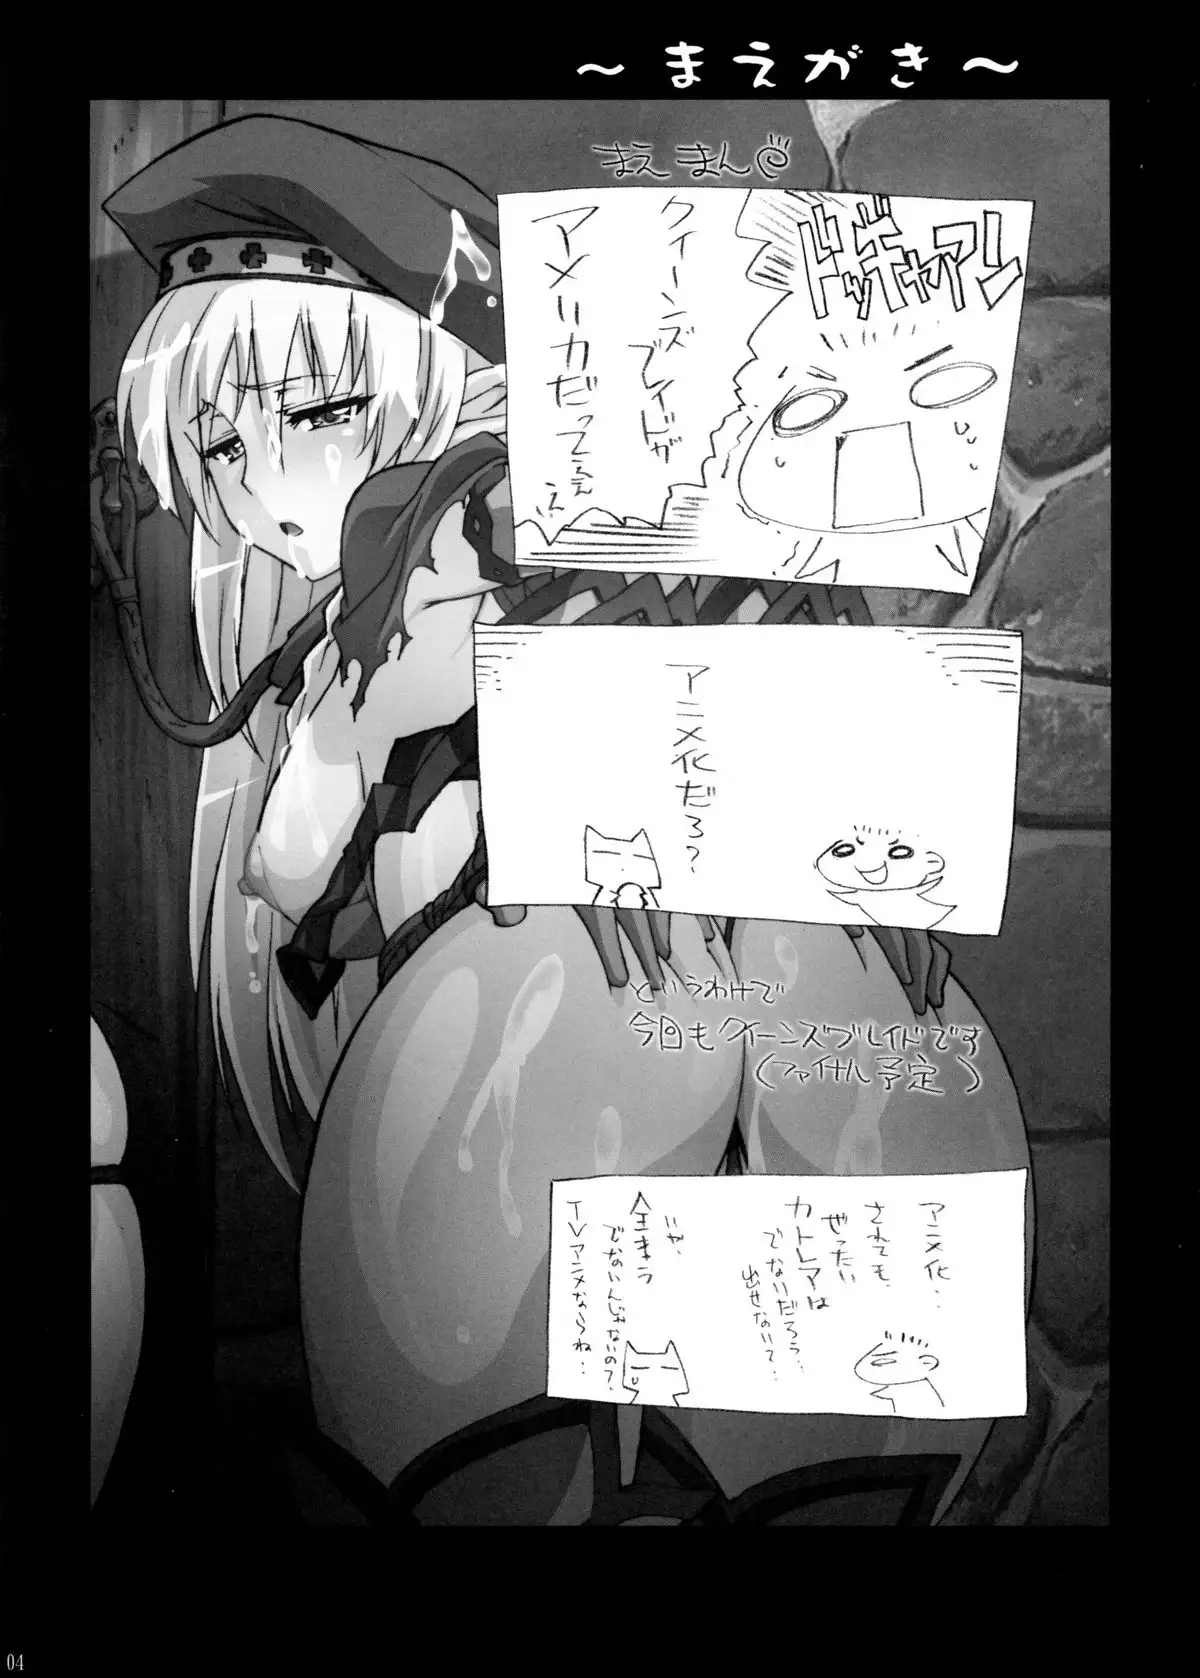 ～まえがき～
まえまん
ドッギャァアン
クイーンズ
ブレイドが
アメリカだってぇぇ
アニメ化だろ？
というわけで
今回もクイーンズブレイドです
(ファイナル予定)
アニメ化‥
されても、
ぜったい
カトレアは
でないだろう‥
出せないって‥
いや、
全まう
でないんじゃないの？
TVアニメならね‥
04